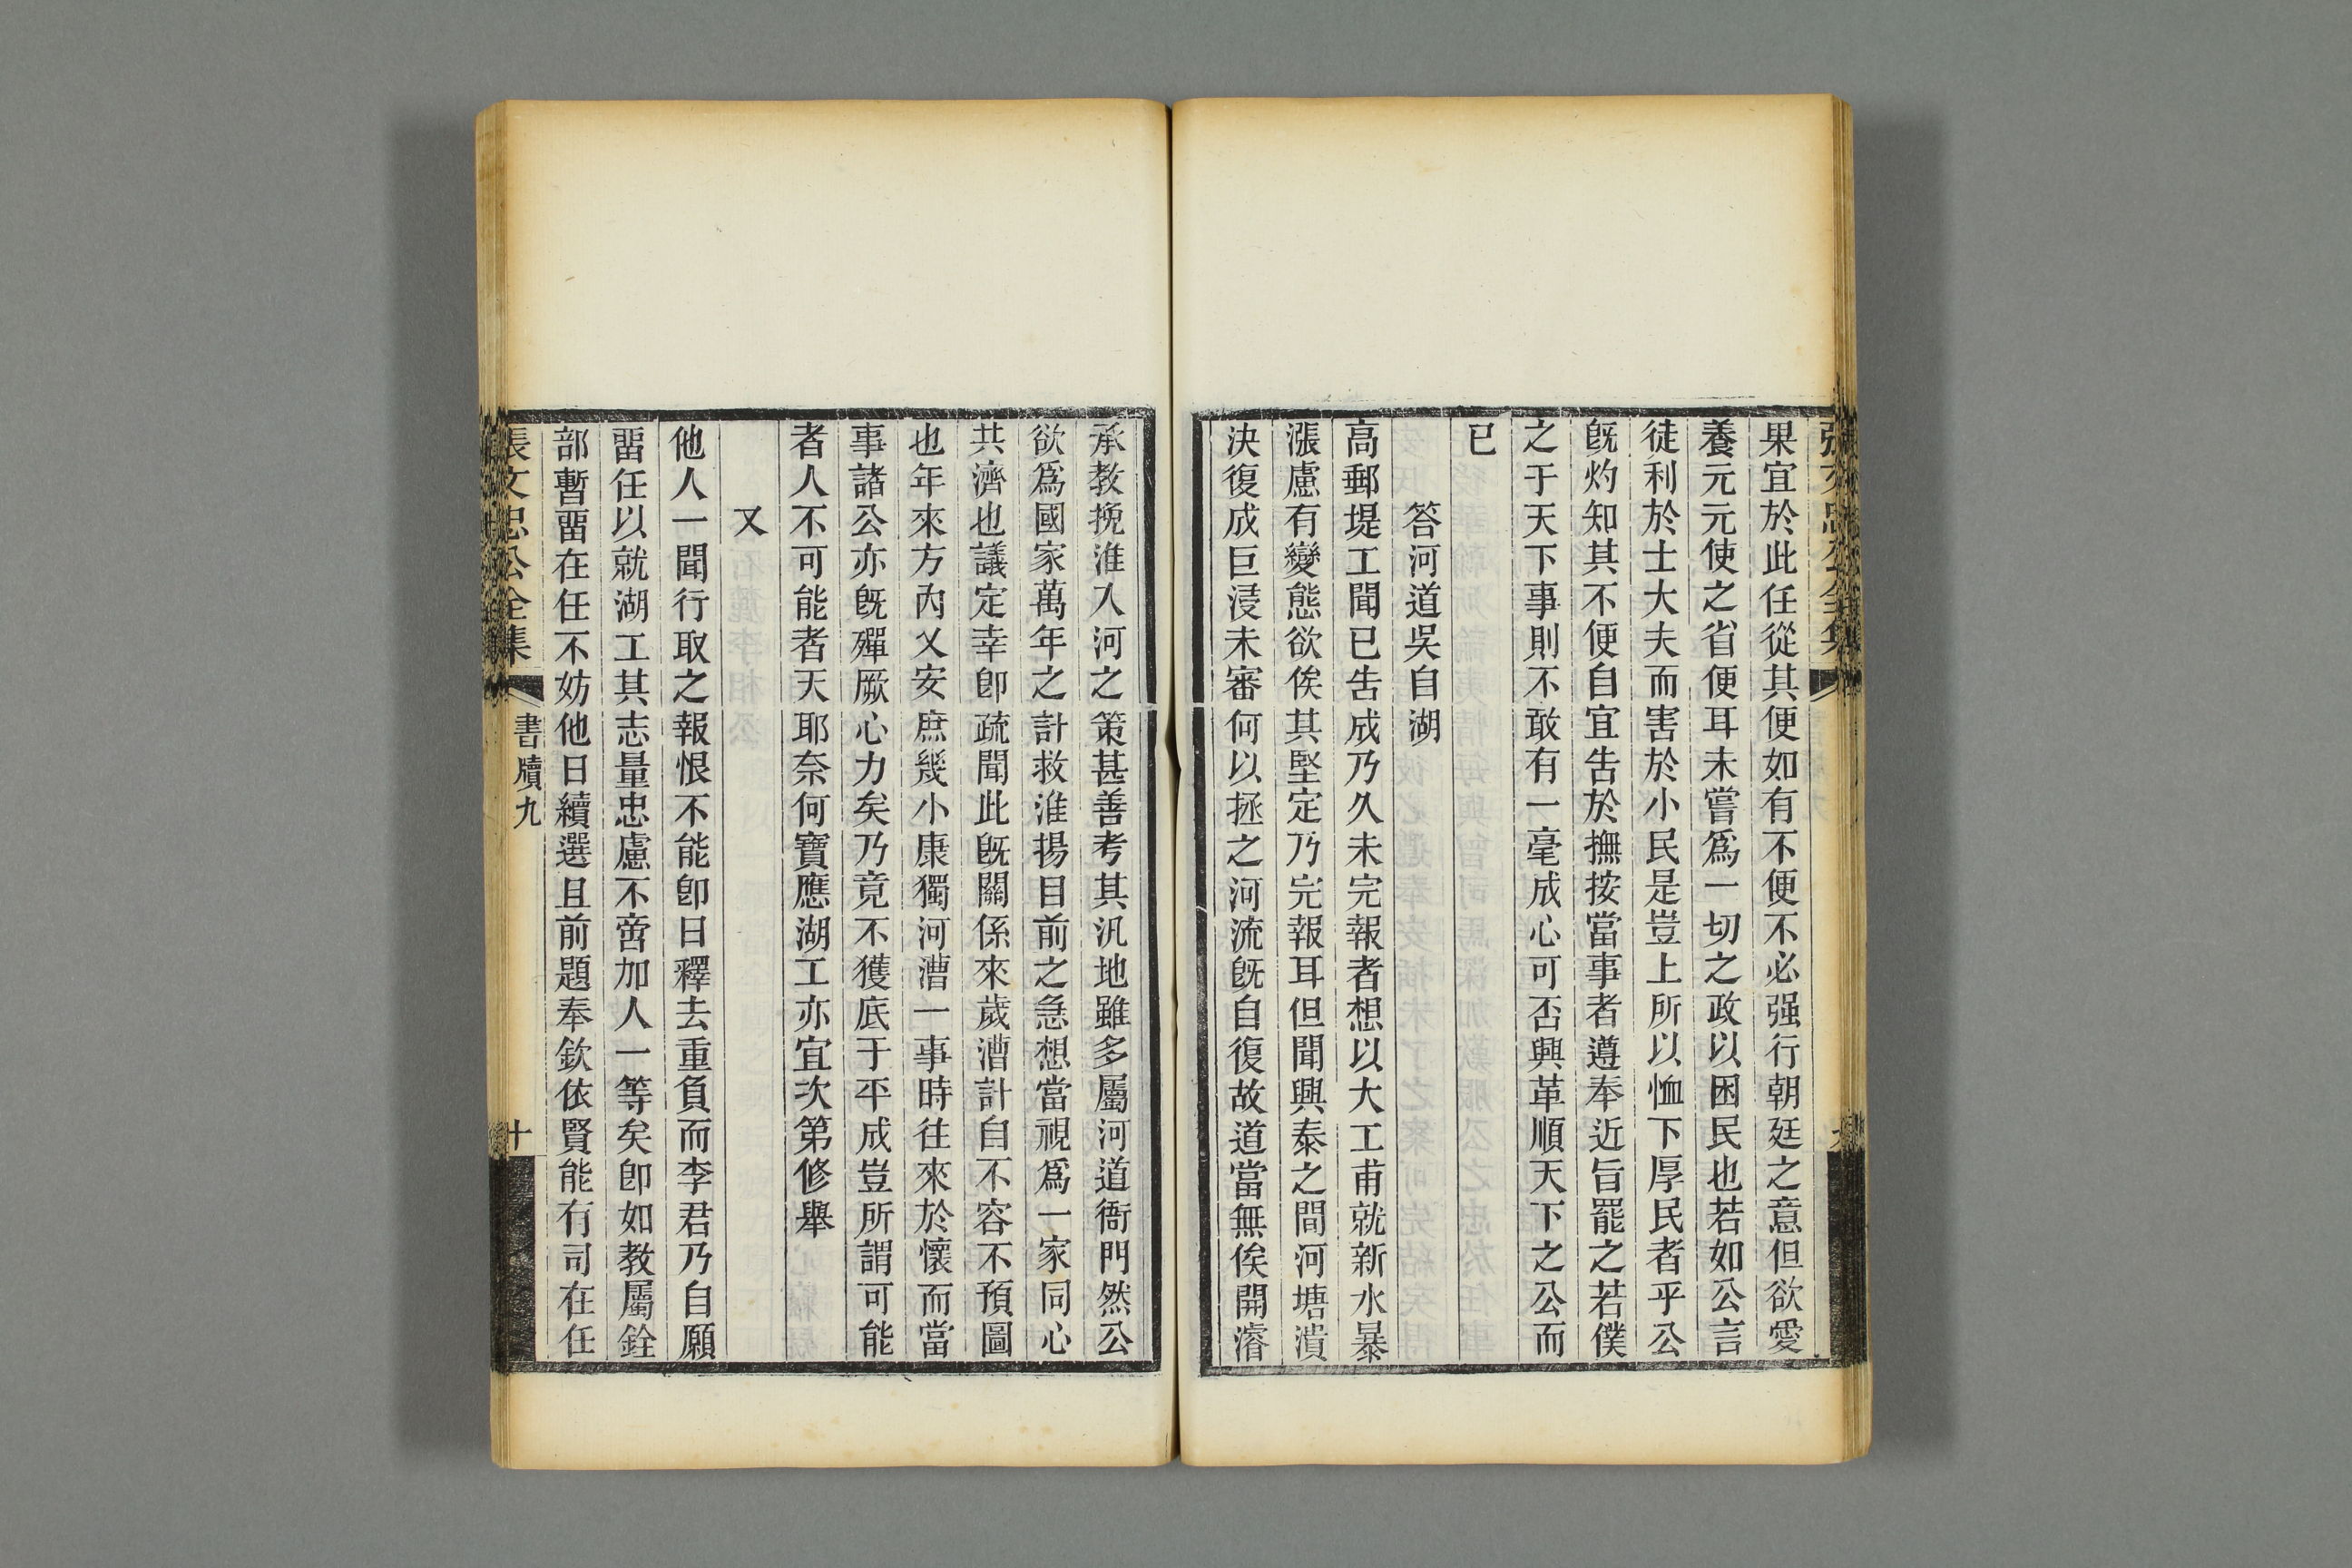 果宜於此任從其便如有不便不必强行朝廷之意但欲愛
養元元使之省便耳未嘗爲一切之政以困民也若如公言
徒利於士大夫而害於小民是豈上所以恤下厚民者乎公
旣灼知其不便自宜告於撫按當事者遵奉近旨罷之若僕
之于天下事則不敢有一毫成心可否興革順天下之公而
已
答河道吳自湖
高郵堤工聞已告成乃久未完報者想以大工甫就新水暴
漲慮有變態欲俟其堅定乃完報耳但聞興泰之間河塘潰
決復成巨浸未審何以拯之河流旣自復故道當無俟開濬
承教挽淮入河之策甚善考其汛地雖多屬河道衙門然公
欲爲國家萬年之計救淮揚目前之急想當視爲一家同心
共濟也議定幸卽疏聞此旣關係來歲漕計自不容不預圖
也年來方內乂安庶幾小康獨河漕一事時往來於懷而當
事諸公亦旣殫厥心力矣乃竟不獲底于平成豈所謂可能
者人不可能者天耶奈何寶應湖工亦宜次第修舉
又
他人一聞行取之報恨不能卽日釋去重負而李君乃自願
畱任以就湖工其志量忠慮不啻加人一等矣卽如教屬銓
部暫畱在任不妨他日續選且前題奉欽依賢能有司在任
張文忠公全集
書牘九
十